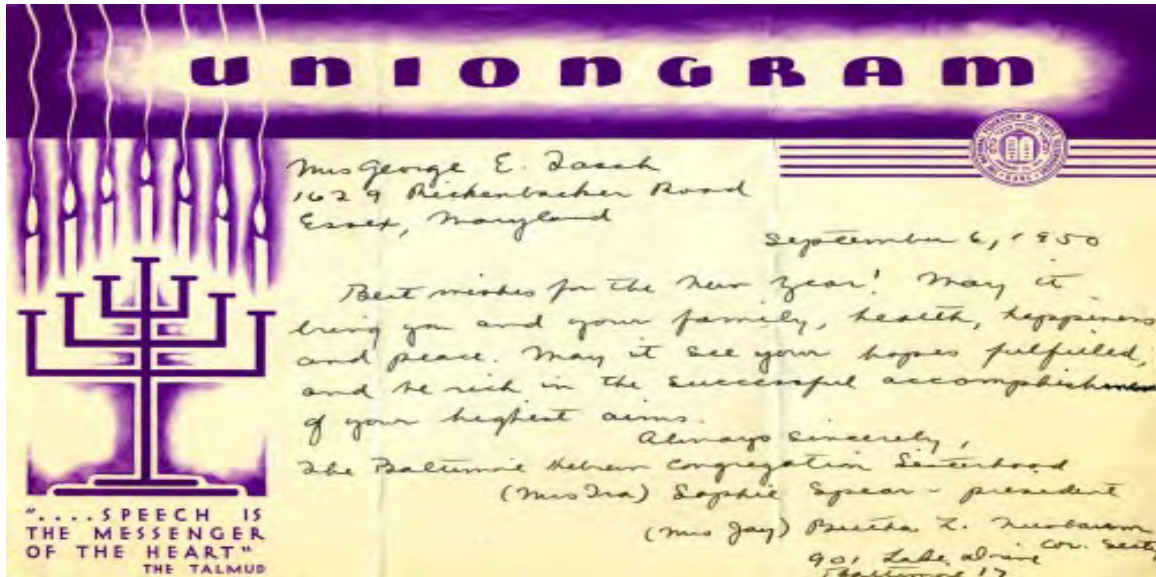 UNIONGRAM
Mrs George E.
1629 Rickenbacker Road
Essex, Maryland
September 6, 1950
Best wishes for the New Year! May it
bring you and your family, health, happiness
and peace. May it see your hopes fulfilled,
and be rich in the successful accomplishment
of your highest aims.
Always sincerely,
The Baltimore Hebrew Congregation Sisterhood
(Mrs Ira) Sophie Spear - president
(Mrs Jay) Bertha L.
Cor. Sect'y
901 Lake Drive
Baltimore 17
"....SPEECH IS
THE MESSENGER
OF THE HEART"
THE TALMUD